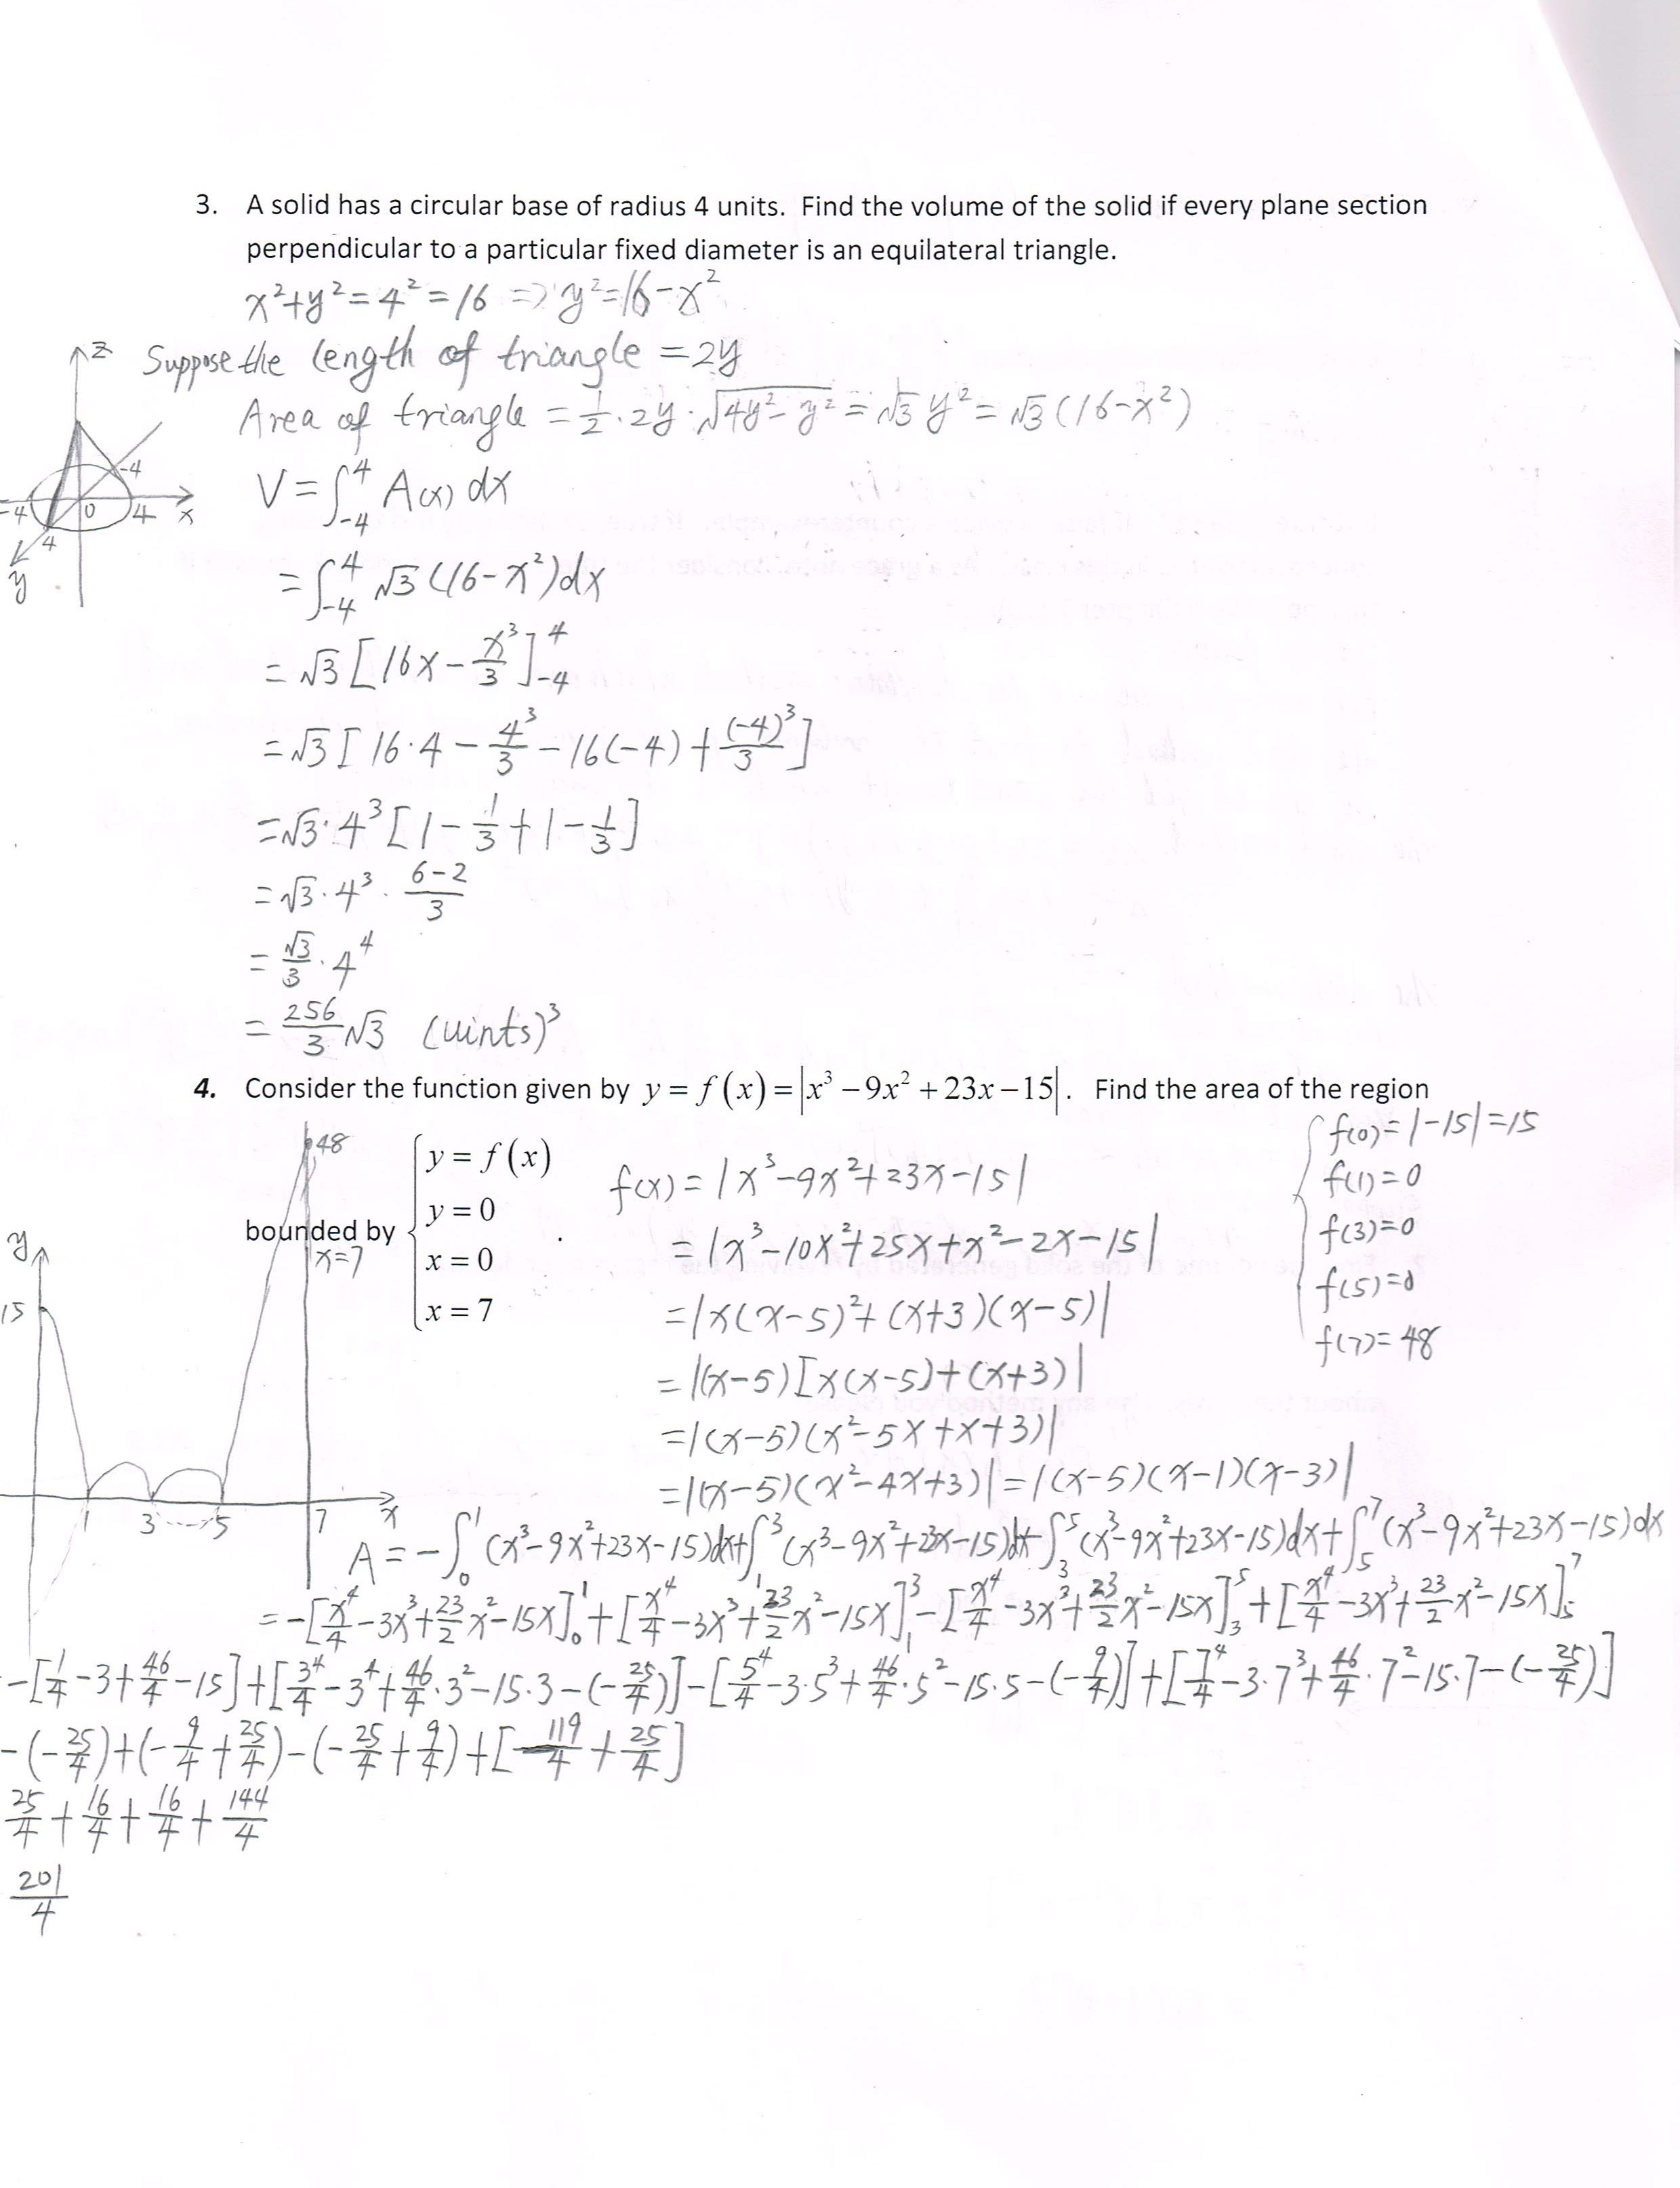 3. A solid has a circular base of radius 4 units. Find the volume of the solid if every plane section
perpendicular to a particular fixed diameter is an equilateral triangle.
x²+y²=4²=16 => y²=16-x²
Suppose the length of triangle =2y
Area of triangle = 1/2·2y·√(4y²-y²) = √3 y² = √3 (16-x²)
z
-4
-4 0 4 x
4
y
V = ∫_{-4}^{4} A(x) dx
= ∫_{-4}^{4} √3 (16-x²)dx
= √3 [16x - x³/3]_{-4}^{4}
= √3 [16·4 - 4³/3 - 16(-4) + (-4)³/3]
= √3·4³ [1 - 1/3 + 1 - 1/3]
= √3·4³· (6-2)/3
= √3/3 · 4⁴
= 256/3 √3 (uints)³
4. Consider the function given by y = f(x) = |x³ - 9x² + 23x - 15|. Find the area of the region
bounded by { y = f(x)
y = 0
x = 0
x = 7 .
48
x=7
y
15
1 3 5 7 x
f(0)= |-15| =15
f(1)=0
f(3)=0
f(5)=0
f(7)= 48
f(x) = |x³-9x²+23x-15|
= |x³-10x²+25x+x²-2x-15|
= |x(x-5)²+(x+3)(x-5)|
= |(x-5)[x(x-5)+(x+3)|
= |(x-5)(x²-5x+x+3)|
= |(x-5)(x²-4x+3)| = |(x-5)(x-1)(x-3)|
A = -∫_0^1 (x³-9x²+23x-15)dx + ∫_1^3 (x³-9x²+23x-15)dx - ∫_3^5 (x³-9x²+23x-15)dx + ∫_5^7 (x³-9x²+23x-15)dx
= -[x⁴/4 - 3x³ + 23/2 x² - 15x]_0^1 + [x⁴/4 - 3x³ + 23/2 x² - 15x]_1^3 - [x⁴/4 - 3x³ + 23/2 x² - 15x]_3^5 + [x⁴/4 - 3x³ + 23/2 x² - 15x]_5^7
-[1/4 - 3 + 46/4 - 15] + [3⁴/4 - 3⁴ + 46/4·3² - 15·3 - (-25/4)] - [5⁴/4 - 3·5³ + 46/4·5² - 15·5 - (-9/4)] + [7⁴/4 - 3·7³ + 46/4·7² - 15·7 - (-25/4)]
-(-25/4) + (-9/4 + 25/4) - (-25/4 + 9/4) + [119/4 + 25/4]
25/4 + 16/4 + 16/4 + 144/4
201/4